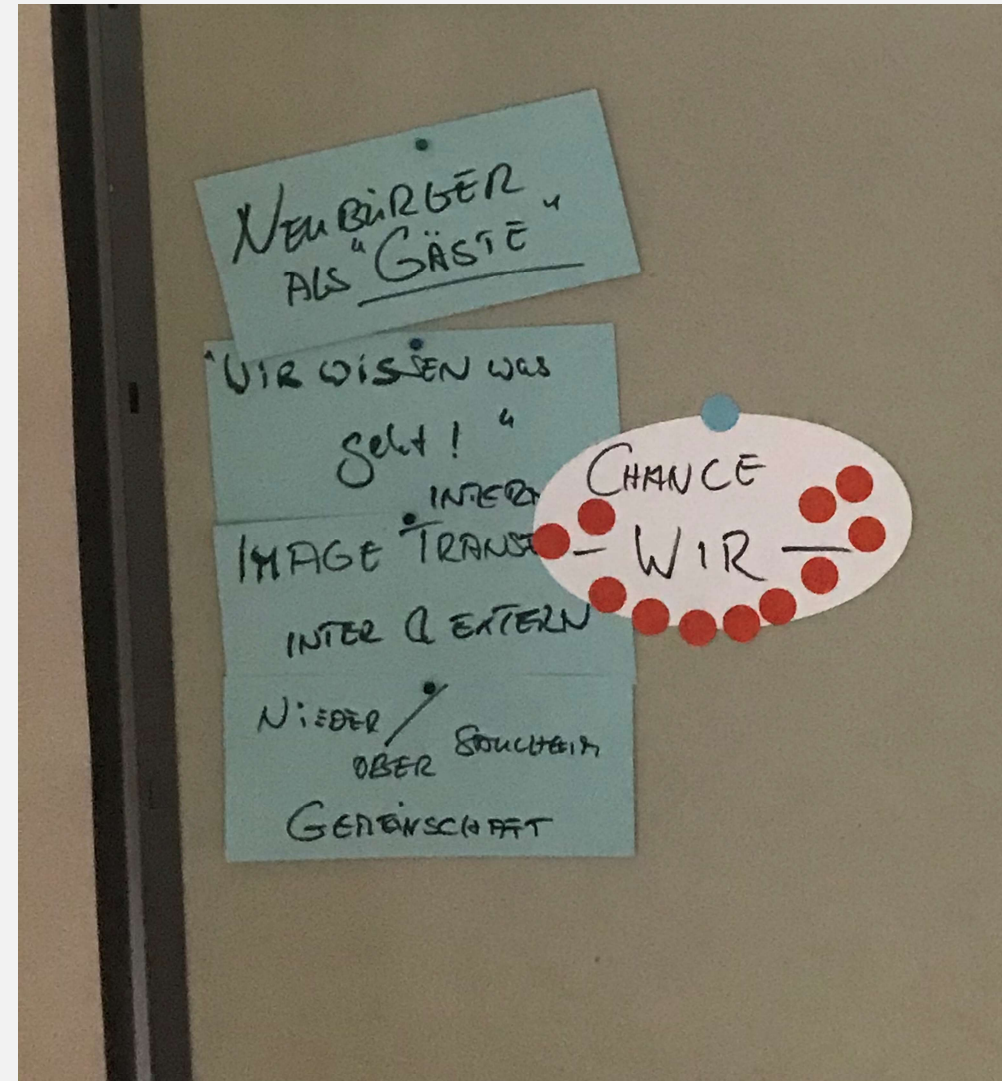 NEUBÜRGER
ALS "GÄSTE"
"WIR WISSEN was
geht!"
INTERN
IMAGE TRANSF
INTER & EXTERN
NIEDER/
OBER
GEMEINSCHAFT
CHANCE
- WIR -